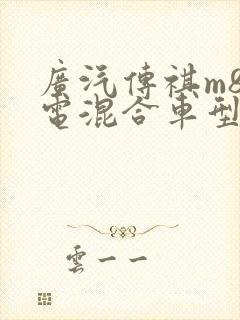 廣汽傳祺m8
電混合車型
雲一一